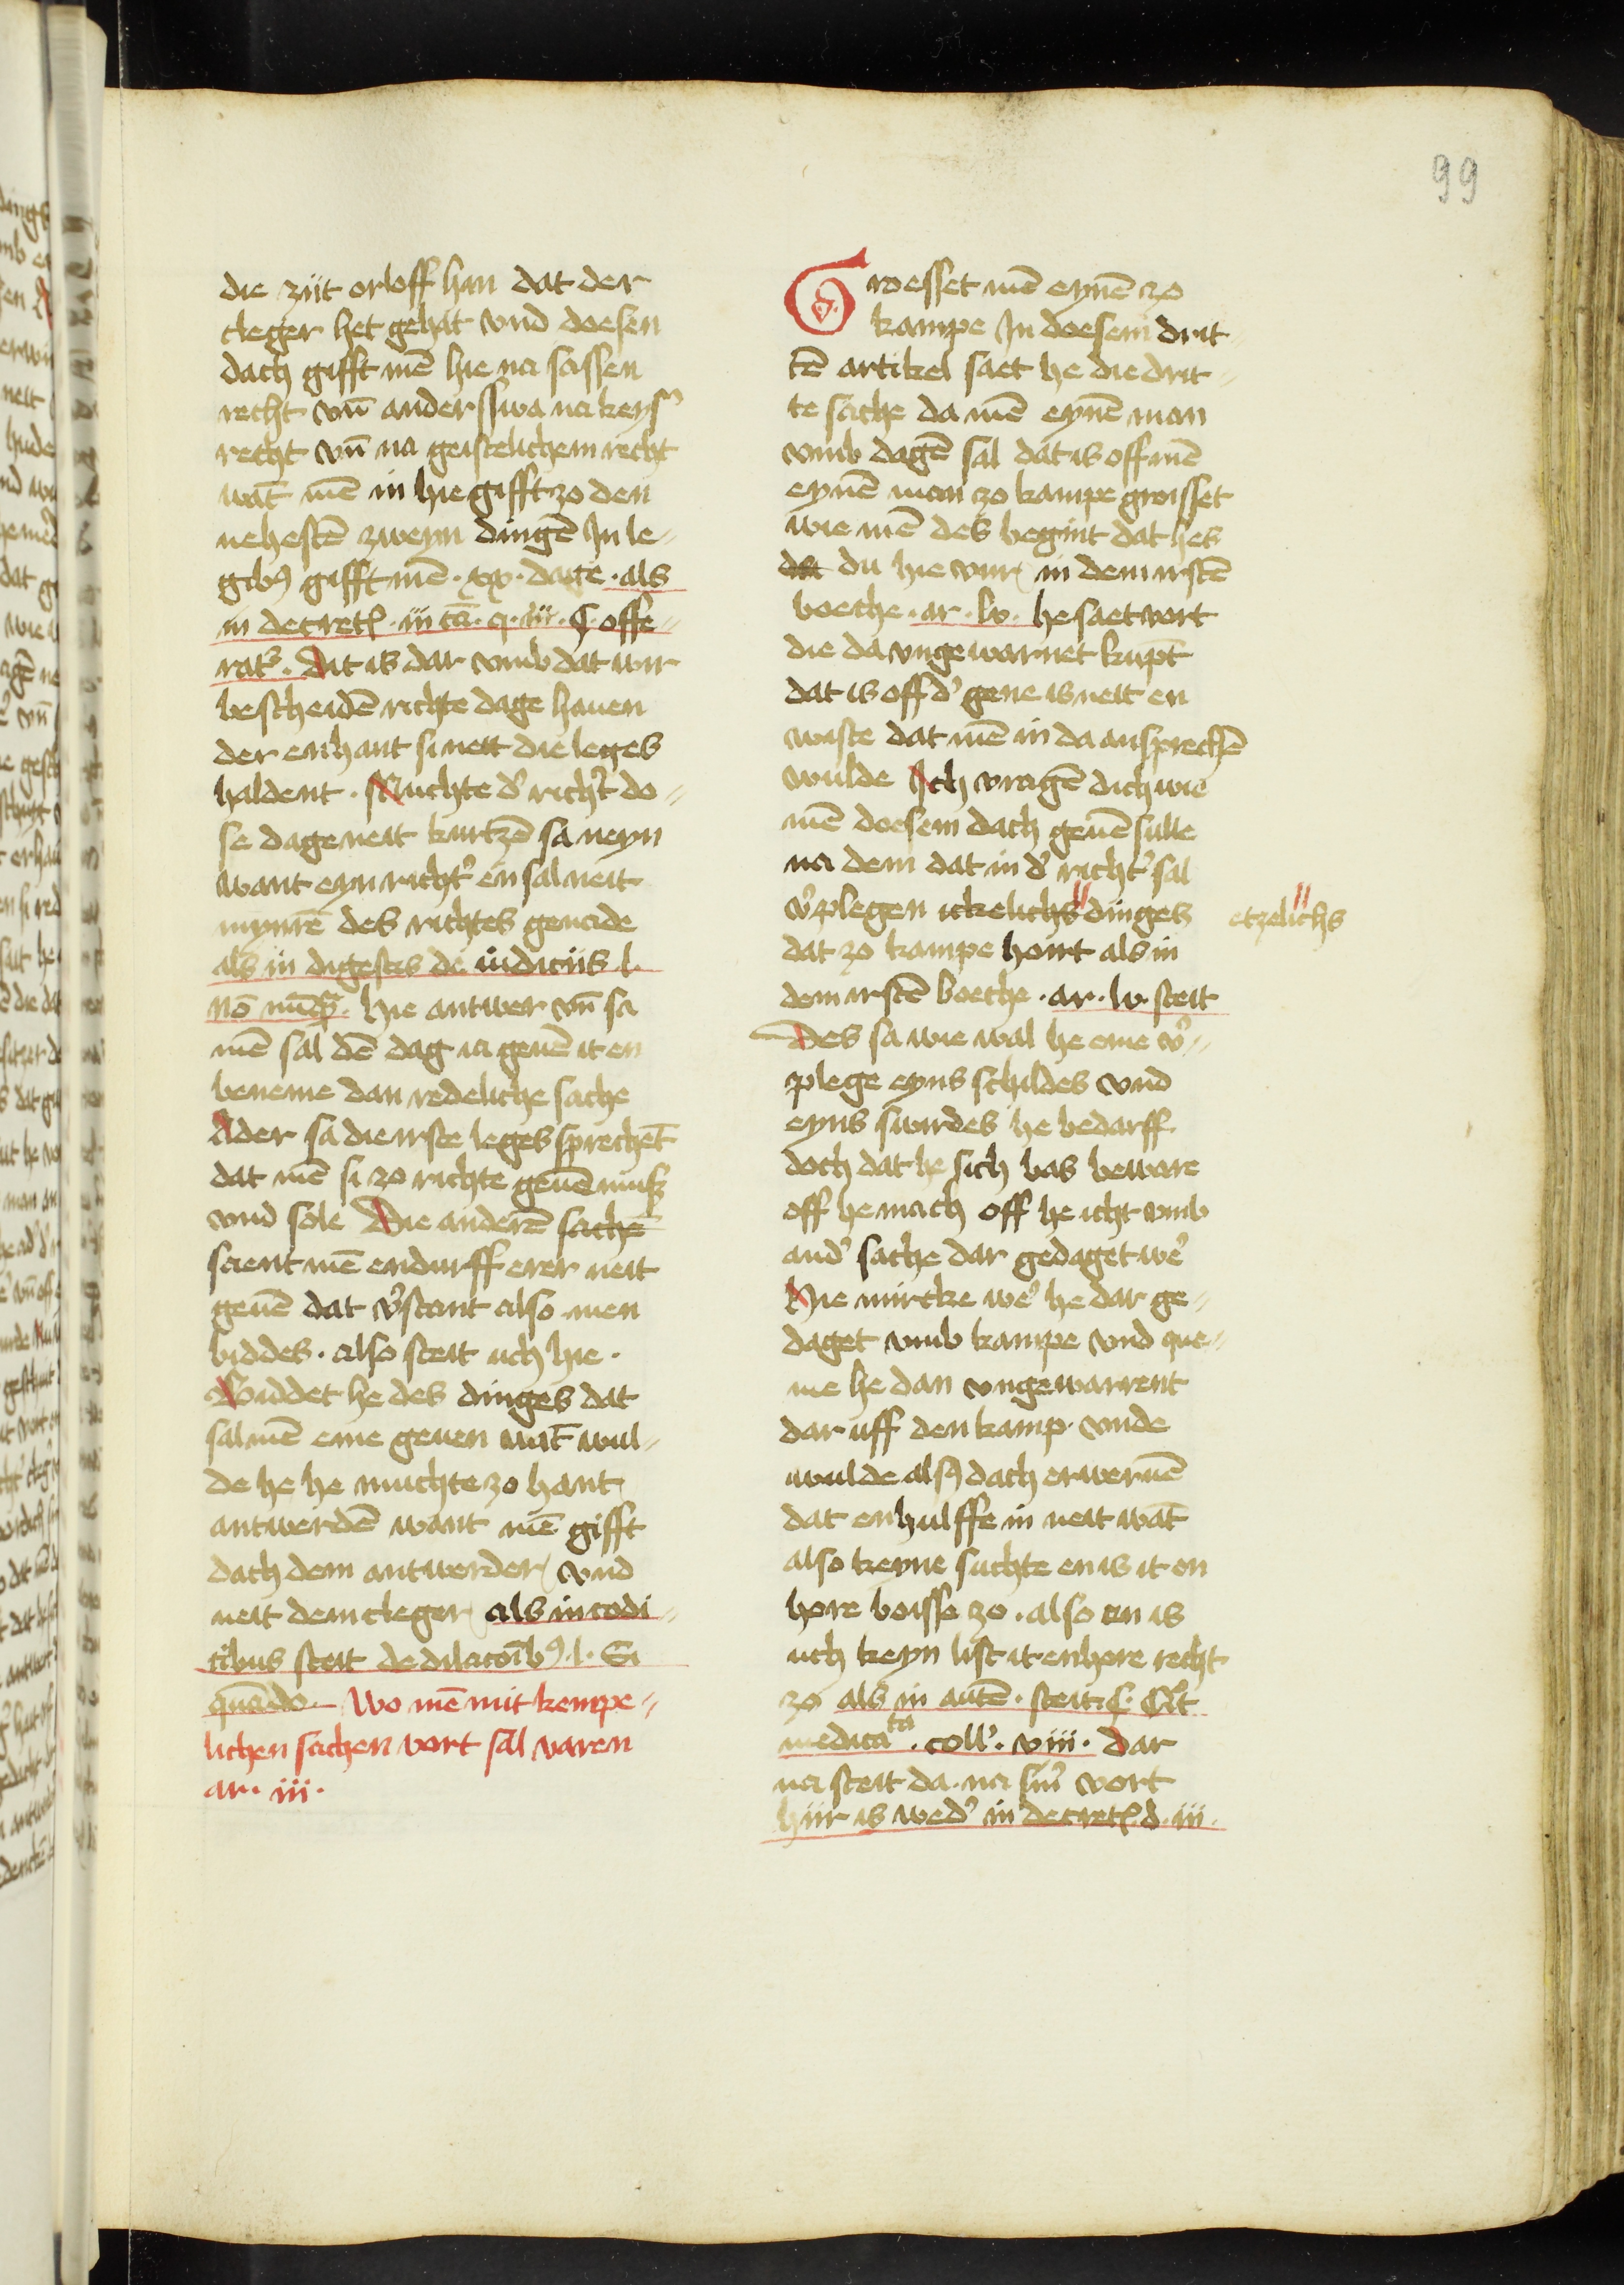 99
die ziit orloff han dat der
cleger het gehat vnd doesen
dach gifft mē hie na sassen
recht vn̄ anderßwa na keyſ
recht vn̄ na geistelichem recht
wāt mē in hie gifft zo den
nehestē zweyn dingē In le⸗
gibꝰ gifft mē · xx · dage · als
in decretꝭ · iii · q · iii · C offe⸗
ratꝭ · Dit is dar vmb dat wir
bescheidē richte dage hauen
der enhant si neit die leges
haldent · Muchte dꝰ richtꝰ do⸗
se dage neit kurtzē sa neyn
want eyn richtꝰ en sal neit
mynrē des richtes genade
als in digestis de iudiciis l.
Nō nūq̄ · hie antwer vn̄ sa
mē sal dē dag ia geuē it en
beneme dan redeliche sache
Ader sa die irste leges sprechēt
dat mē si zo richte geuē muß
vnd sole Die anderē sachē
saent mē endurff erer neit
geuē dat vꝰstant also men
biddes · also steit uch hie ·
Biddet he des dinges dat
sal mē eme geuen wāt wul⸗
de he he muchte zo hant
antwerdē want mē gifft
dach dem antwerder vnd
neit dem cleger als in codi⸗
cibus steit de dilacōibꝰ · l · Si
quādo — Wo mē mit kempe⸗
lichen sachen vort sal varen
ar · iii ·
Groesset mē eynē zo
kampe In doesem drit⸗
tē artikel saet he die drit⸗
te sache da mē eynē man
vmb dagē sal dat is off mē
eynē man zo kampe groisset
wie mē des begint dat hes
du hie vur in dem irstē
boeche · ar · lv · he saet vort
die da vngewarnet kūpt
dat is off dꝰ gene is neit en
wiste dat mē in da ansprechē
wulde Ich vragē dich wie
mē doesem dach geuē sulle
na dem dat in dꝰ richtꝰ sal
vꝰplegen ickelichs dinges
etzelichs
dat zo kampe hoirt als in
dem irstē boeche · ar · lv · steit
Des sa wie wal he eme vꝰ⸗
plege eyns schildes vnd
eyns swirdes he bedarff
doch dat he sich bas beware
off he mach off he icht vmb
andꝰ sache dar gedaget weꝰ
Hie mircke weꝰ he dar ge⸗
daget vmb kampe vnd que⸗
me he dan vngewarrent
dar uff den kamp · vnde
wulde alsꝰ dach erweruē
dat enhulffe in neit wāt
also keyne suchte en is it en
hore boisse zo · also en is
uch keyn list it enhore recht
zo als in autē · steit · C · Ut
medica ta · coll' · viii · Dar
na steit da · na sinꝰ vort
hiir is wedꝰ in decretꝭ · d · iii ·